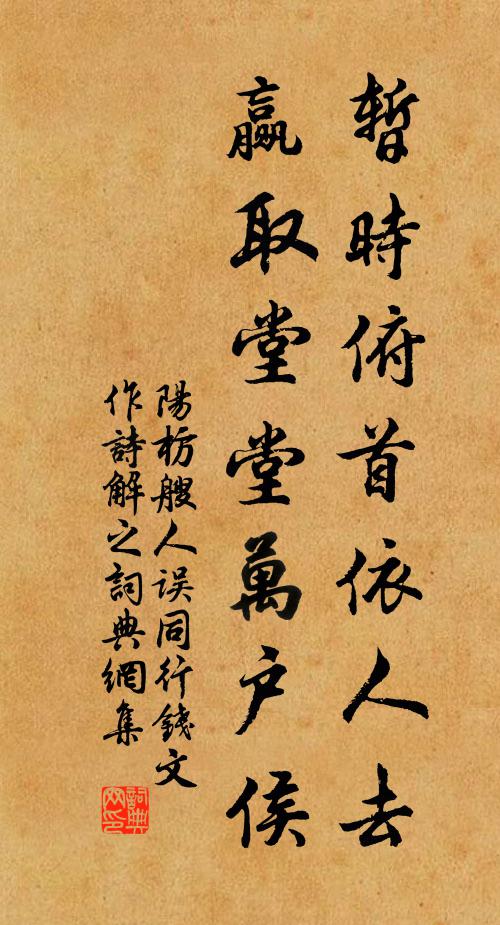 暫時俯首依人去
贏取堂堂萬戶侯
陽枋艘人误同行錢文
作詩解之詞典網集
詞典网印